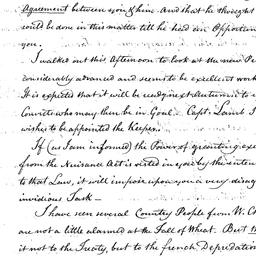 Agreement between you & him. And that he thought
could be done in this matter till he had an Opportun
you.
I walked out this Afternoon to look at the new P
considerably advanced and seems to be excellent work
It is expected that it will be ready next Autumn to
Convicts who may then be in Goal. Capt. Lamb
wishes to be appointed the Keeper.
If (as I am informed) the Power of granting exe
from the Nuisance Act is vested in you by the
to that Law, it will impose upon you a very disag
invidious Task —
I have seen several Country People from W. C
are not a little alarmed at the Fall of Wheat. But
it not to the Treaty, but to the french Depredation